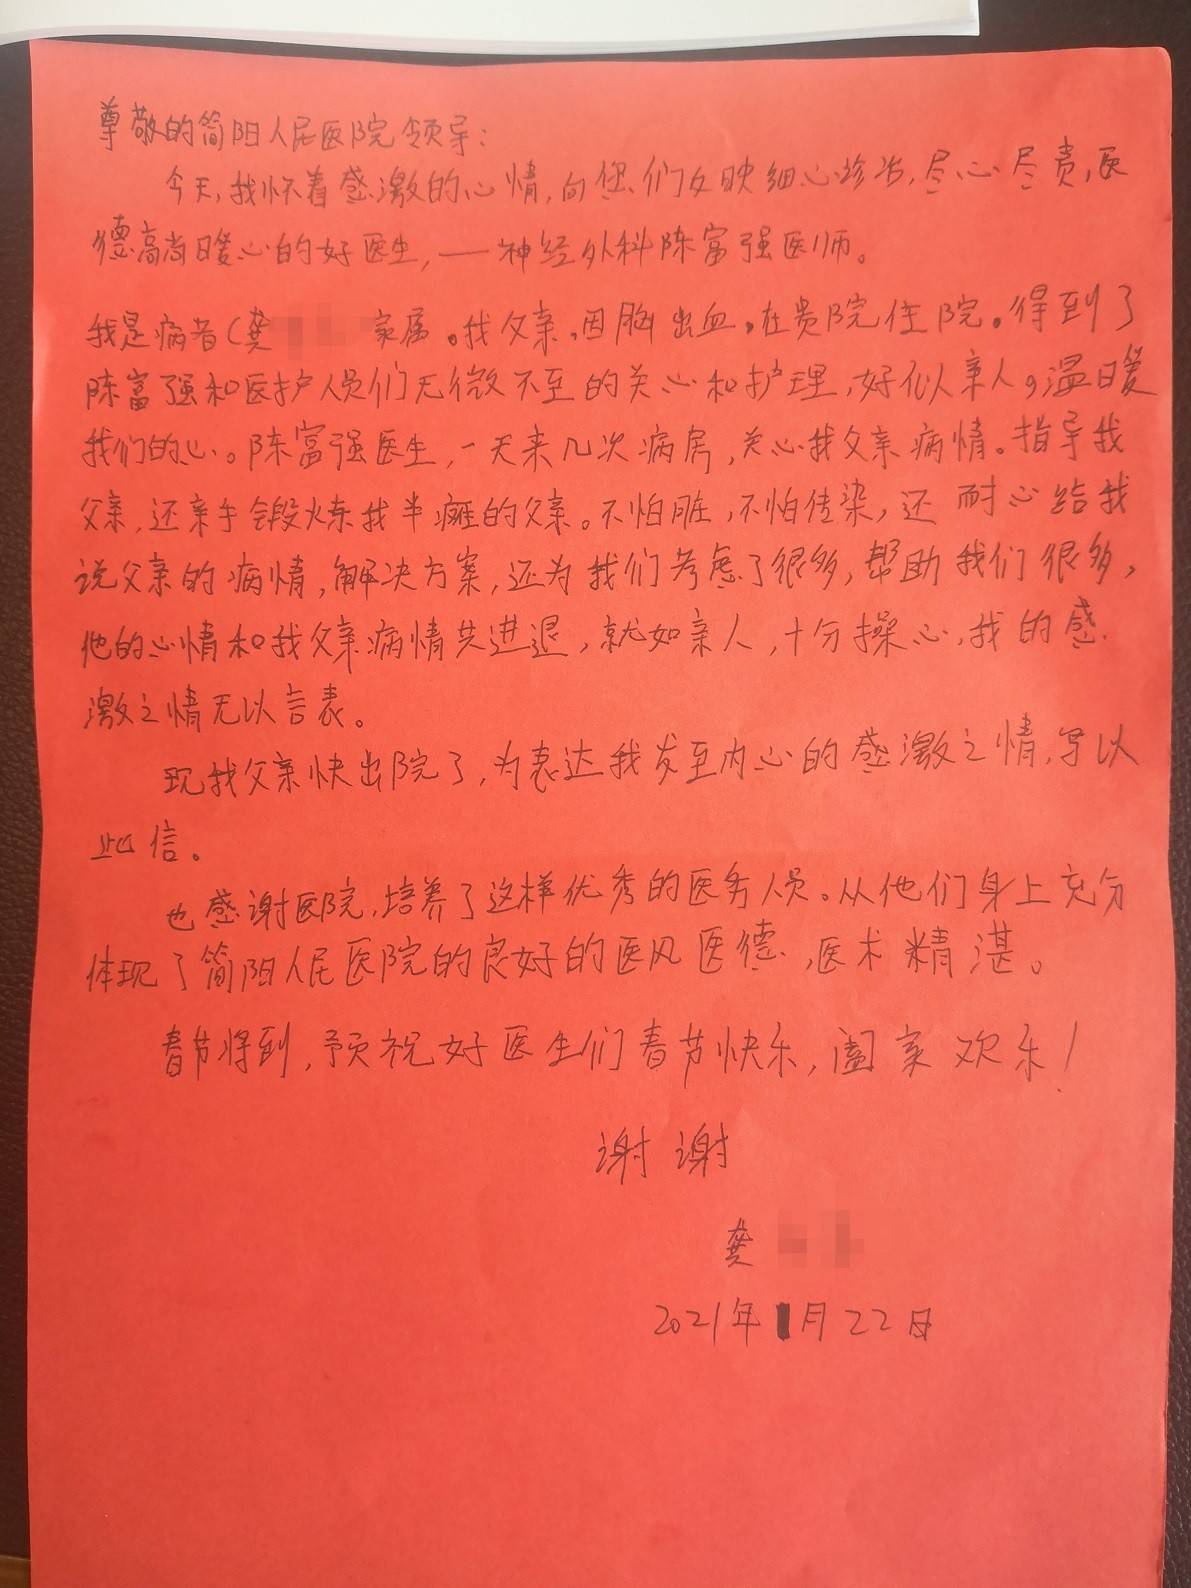 尊敬的简阳人民医院领导：
今天，我怀着感激的心情，向您们反映细心诊治，尽心尽责，医
德高尚暖心的好医生，——神经外科陈富强医师。
我是病者（龚 家属。我父亲，因脑出血，在贵院住院。得到了
陈富强和医护人员们无微不至的关心和护理，好似亲人。温暖
我们的心。陈富强医生，一天来几次病房，关心我父亲病情。指导我
父亲，还亲手锻炼我半瘫的父亲。不怕脏，不怕传染，还耐心给我
说父亲的病情，解决方案，还为我们考虑了很多，帮助我们很多，
他的心情和我父亲病情共进退，就如亲人，十分操心，我的感
激之情无以言表。
现我父亲快出院了，为表达我发至内心的感激之情，写以
此信。
也感谢医院，培养了这样优秀的医务人员。从他们身上充分
体现了简阳人民医院的良好的医风医德，医术精湛。
春节将到，预祝好医生们春节快乐，阖家欢乐！
谢谢
龚
2021年1月22日